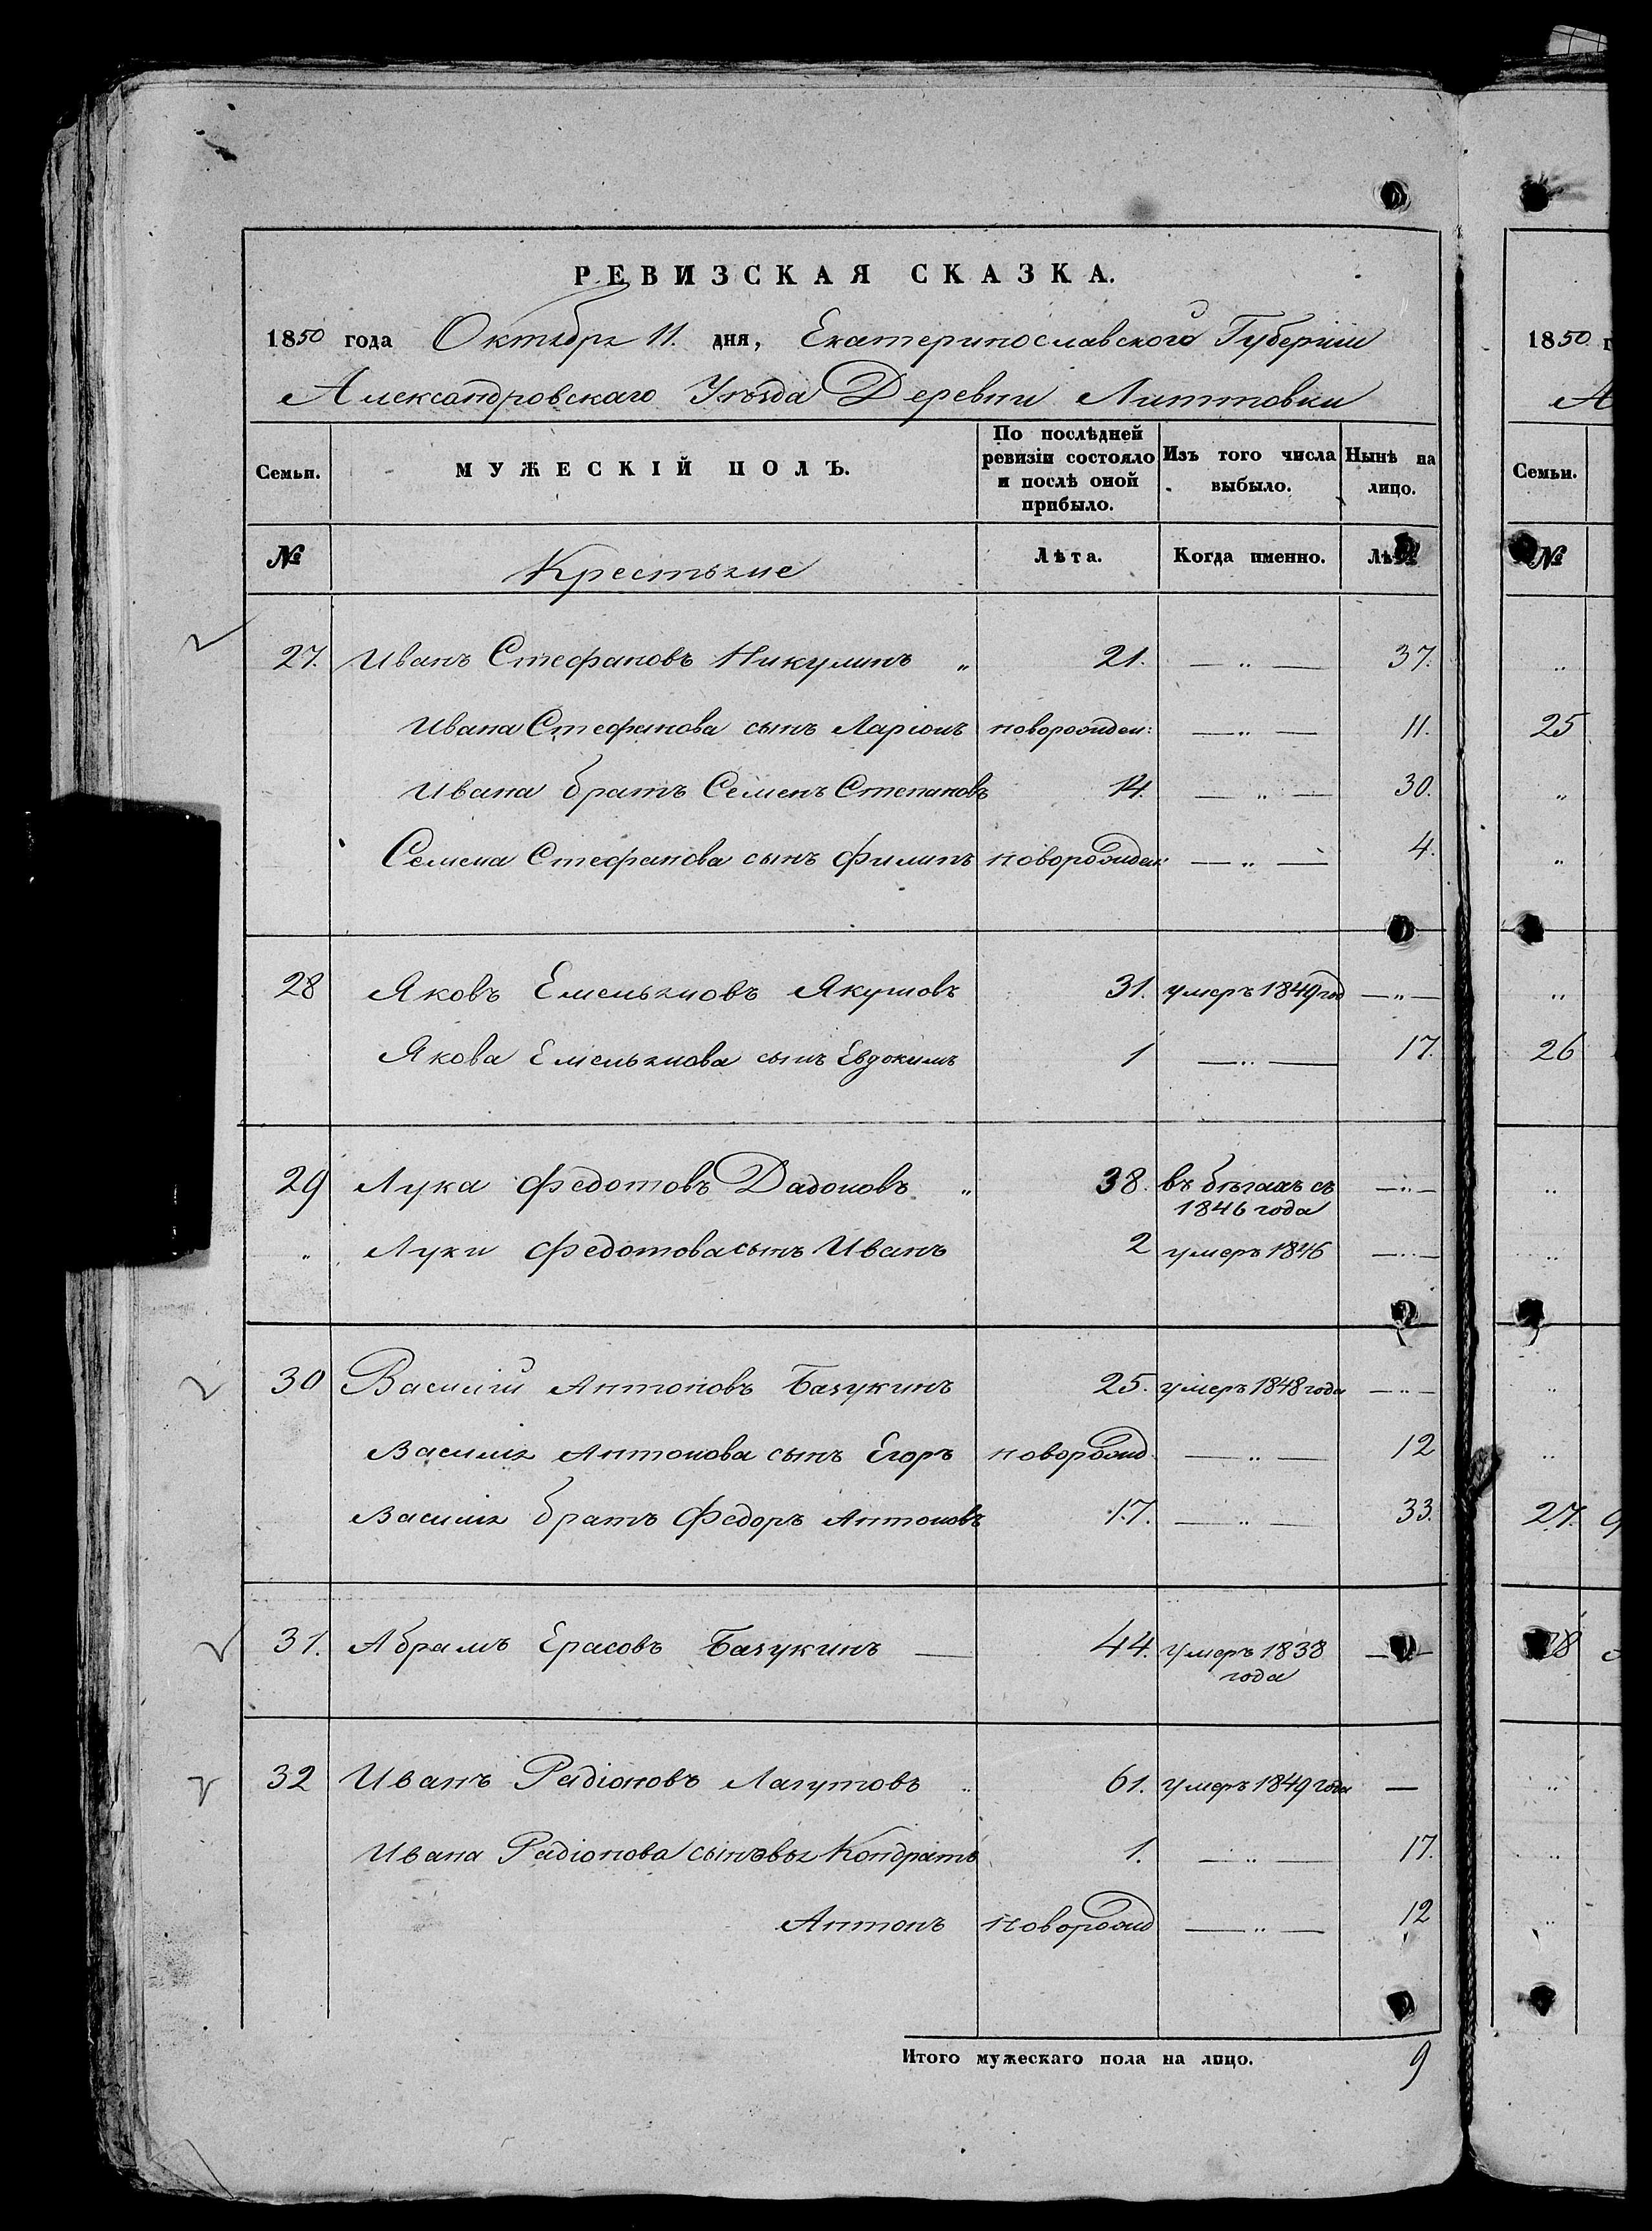 РЕВИЗСКАЯ СКАЗКА.
1850 года Октября 11. дня, Екатеринославской Губерніи
Александровскаго Уѣзда Деревни Литтовки
Семьи. МУЖЕСКІЙ ПОЛЪ. По послѣдней ревизіи состояло и послѣ оной прибыло. Изъ того числа выбыло. Нынѣ на лицо.
№ Крестьяне Лѣта. Когда именно. Лѣта
27. Иванъ Стефановъ Никулинъ „ 21. — „ — 37.
Ивана Стефанова сынъ Ларіонъ новорожден: — „ — 11.
Ивана братъ Семенъ Степановъ 14. — „ — 30.
Семена Стефанова сынъ Филипъ новорожден: — „ — 4.
28 Яковъ Емельяновъ Якушовъ 31. умеръ 1849 год — „ —
Якова Емельянова сынъ Евдокимъ 1 — „ — 17.
29 Лука Федотовъ Дадоновъ „ 38. въ бѣгахъ съ 1846 года — „ —
„ Луки Федотова сынъ Иванъ 2 умеръ 1846 — „ —
30 Василій Антоновъ Базукинъ 25. умеръ 1848 года — „ —
Василія Антонова сынъ Егоръ новорожд. — „ — 12
Василія братъ Федоръ Антоновъ 17. — „ — 33.
31. Абрамъ Ерасовъ Базукинъ — 44. умеръ 1838 года — „ —
32 Иванъ Радіоновъ Лагутовъ „ 61. умеръ 1849 года —
Ивана Радіонова сыновья Кондратъ 1. — „ — 17.
Антонъ новорожд — „ — 12
Итого мужескаго пола на лицо. 9
1850 г
А
Семьи.
№
25
26
27.
28